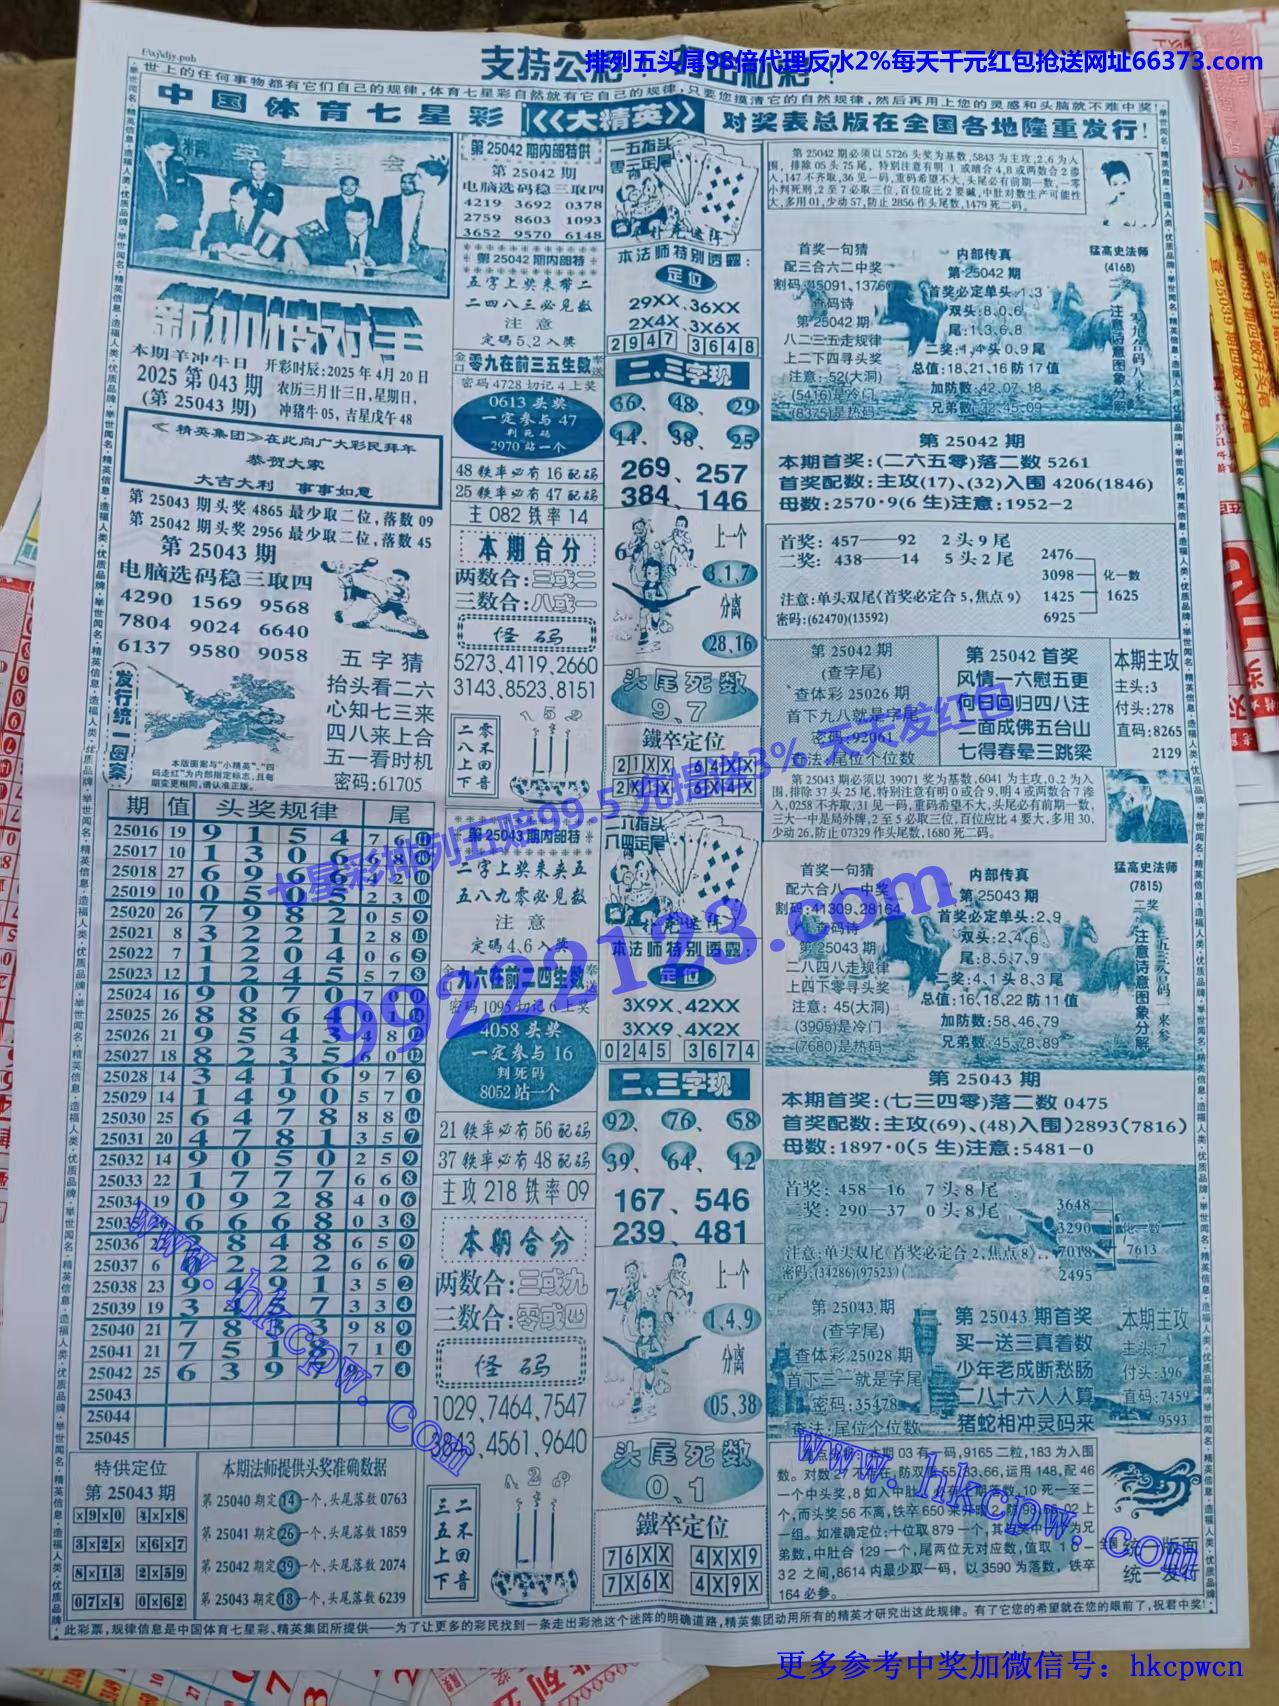 f:\xj\djy.pub
支持公彩！
排列五头尾98倍代理反水2%每天千元红包抢送网址66373.com
世上的任何事物都有它们自己的规律,体育七星彩自然就有它自己的规律,只要您摸清它的自然规律,然后再用上您的灵感和头脑就不难中奖!
中国体育七星彩《大精英》对奖表总版在全国各地隆重发行!
本期羊冲牛日
开彩时辰:2025年4月20日
2025第043期
农历三月廿三日,星期日,
(第25043期)
冲猪牛05,吉星戊午48
《精英集团》在此向广大彩民拜年
恭贺大家
大吉大利 事事如意
第25043期头奖4865最少取二位,落数09
第25042期头奖2956最少取二位,落数45
第25043期
电脑选码稳三取四
4290 1569 9568
7804 9024 6640
6137 9580 9058
发行统一图案
五字猜
抬头看二六
心知七三来
四八来上合
五一看时机
密码:61705
本版图案与“小精英”、“四
码走红”为内部指定标志,且每
期变更相同,请认准正版。
期 值 头奖规律 尾
25016 19 9 1 5 4 7 6
25017 10 1 3 0 6 6 8
25018 27 6 9 6 6 4 2
25019 10 0 5 0 5 2 3
25020 26 7 9 8 2 0 5 9
25021 8 3 2 2 1 2 8 13
25022 7 1 2 0 4 0 6 6
25023 12 1 2 4 5 5 7 8
25024 16 9 0 7 0 7 0
25025 26 8 8 6 4 0 1
25026 21 9 5 4 3 4 8 12
25027 18 8 2 3 5 6 0 12
25028 14 3 4 1 6 9 7 3
25029 14 1 4 9 0 5 7 1
25030 25 6 4 7 8 8 8 14
25031 20 4 7 8 1 3 5 7
25032 14 9 0 5 0 2 5 9
25033 22 1 7 7 7 6 6 8
25034 19 0 9 2 8 4 0 6
25035 6 6 6 8 0 3 8
25036 8 4 8 6 5 9
25037 6 2 2 2 6 6 7
25038 23 9 4 9 1 3 5 2
25039 19 3 4 5 7 3 3 4
25040 21 7 8 3 3 9 8 9
25041 21 7 5 1 8 7 1 4
25042 25 6 3 9 7 9 7 4
25043
25044
25045
特供定位
第25043期
×9×0 4××8
3×2× ×6×7
8×13 2×59
07×4 0×62
本期法师提供头奖准确数据
第25040期定14一个,头尾落数0763
第25041期定26一个,头尾落数1859
第25042期定39一个,头尾落数2074
第25043期定18一个,头尾落数6239
第25042期内部特供
第25042期
电脑选码稳三取四
4219 3692 0378
2759 8603 1093
3652 9570 6148
第25042期内部特
五字上奖来带二
二四八三必见数
注意
定码5、2入奖
金口 零九在前三五生数 奉送
密码4728切记4上奖
0613头奖
一定参与47
判死码
2970站一个
48铁率必有16配码
25铁率必有47配码
主082铁率14
本期合分
两数合:三或二
三数合:八或一
怪码
5273、4119、2660
3143、8523、8151
二八上下
零不回音
第25043期内部特
二字上奖来奂五
五八九零必见数
注意
定码4、6入奖
金口 九六在前二四生数 奉送
密码1095切记6上奖
4058头奖
一定参与16
判死码
8052站一个
21铁率必有56配码
37铁率必有48配码
主攻218铁率09
本期合分
两数合:三或九
三数合:零或四
怪码
1029、7464、7547
3843、4561、9640
三五上下
二不回音
一五指头
零三定尾
扑克迷阵
本法师特别透露:
定位
29XX、36XX
2X4X、3X6X
2947 3648
二、三字现
36、48、29
14、38、25
269、257
384、146
6
上一个
3,1,7
分离
28,16
头尾死数
9、7
鐵卒定位
21XX 64XX
2X1X 6X4X
二六指头
八四定尾
扑克迷阵
本法师特别透露:
定位
3X9X、42XX
3XX9、4X2X
0245 3674
二、三字现
92、76、58
39、64、12
167、546
239、481
7
上一个
1,4,9
分离
05,38
头尾死数
0、1
鐵卒定位
76XX 4XX9
7X6X 4X9X
第25042期必须以5726头奖为基数,5843为主攻,2、6为入
围,排除05头75尾,特别注意有明1或暗合4,8或两数合2渗
入,147不齐取,36见一码,重码希望不大,头尾必有前期一数,一零
小判死刑,2至7必取三位,百位应比2要碱,中肚对数生产可能性
大,多用01,少动57,防止2856作头尾数,1479死二码。
首奖一句猜
配三合六二中奖
割码:45091、13760
查码诗
第25042期
八二三五走规律
上二下四寻头奖
注意:52(大洞)
(5416)是冷门
(8375)是热码
内部传真
第25042期
首奖必定单头:1、3
双头:8、0、6
尾:1、3、6、8
二奖:1、4头0、9尾
总值:18、21、16防17值
加防数:42、07、18
兄弟数:32、45、09
猛高史法师
(4168)
二奖
零九合码八来参
注意诗意图象分解
第25042期
本期首奖:(二六五零)落二数5261
首奖配数:主攻(17)、(32)入围4206(1846)
母数:2570·9(6生)注意:1952-2
首奖:457——92 2头9尾
二奖:438——14 5头2尾
注意:单头双尾《首奖必定合5,焦点9》
密码:(62470)(13592)
2476
3098
1425
6925
化一数
1625
第25042期
(查字尾)
查体彩25026期
首下九八就是字尾
密码:92061
第25042首奖
风情一六慰五更
何日回归四八注
二面成佛五台山
七得春晕三跳梁
本期主攻
主头:3
付头:278
直码:8265
2129
第25043期必须以39071奖为基数,6041为主攻,0、2为入
围,排除37头25尾,特别注意有明0或合9,明4或两数合7渗
入,0258不齐取,31见一码,重码希望不大,头尾必有前期一数,
三大一中是局外牌,2至5必取三位,百位应比4要大,多用30,
少动26,防止07329作头尾数,1680死二码。
首奖一句猜
配六合八一中奖
割码:41309、28164
查码诗
第25043期
二八四八走规律
上四下零寻头奖
注意:45(大洞)
(3905)是冷门
(7680)是热码
内部传真
第25043期
首奖必定单头:2、9
双头:2、4、6
尾:8、5、7、9
二奖:4、1头8、3尾
总值:16、18、22防11值
加防数:58、46、79
兄弟数:45、78、89
猛高史法师
(7815)
二奖
二五合码二来参
注意诗意图象分解
第25043期
本期首奖:(七三四零)落二数0475
首奖配数:主攻(69)、(48)入围)2893(7816)
母数:1897·0(5生)注意:5481-0
首奖:458—16 7头8尾
二奖:290—37 0头8尾
注意:单头双尾《首奖必定合2,焦点8》
密码:(34286)(97523)
3648
3290
7018
2495
化一数
7613
第25043期
(查字尾)
查体彩25028期
首下三一就是字尾
密码:35478
查法:尾位个位数
第25043期首奖
买一送三真着数
少年老成断愁肠
二八十六人人算
猪蛇相冲灵码来
本期主攻
主头:7
付头:396
直码:7459
9593
本期03有一码,9165二粒,183为入围
数。对数27不在,防双重55、83、66,运用148,配46
一个中头奖,8如入中肚
一组。如准确定位:十位取879一个
弟数,中肚合129一个,尾两位无对应数,值取10-
32之间,8614内最少取一码,以3590为落数,铁卒
164必参。
全国统一版面
统一发行
此彩票,规律信息是中国体育七星彩、精英集团所提供——为了让更多的彩民找到一条走出彩池这个迷阵的明确道路,精英集团动用所有的精英才研究出这此规律。有了它您的希望就在您的眼前了,祝君中奖!
七星彩排列五赔99.5 充提送3% 天天发红包
99222123.com
www.hkcpw.com
www.hkcpw.com
更多参考中奖加微信号：hkcpwcn